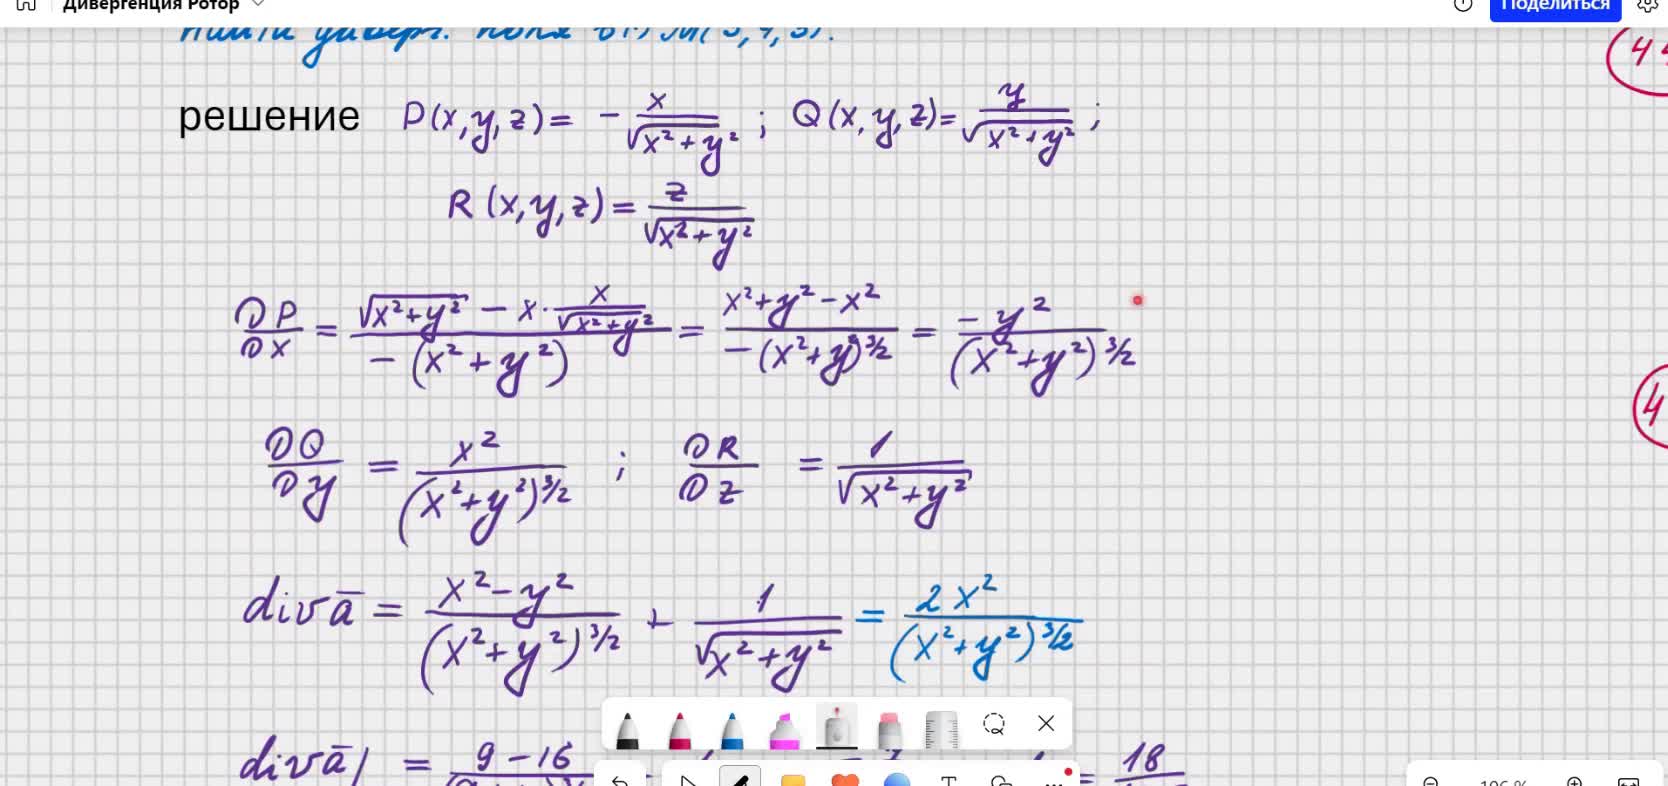 Дивергенция Ротор
Поделиться
Найти диверг. поля в т. M(3,4,5).
решение P(x,y,z) = - x/√(x²+y²) ; Q(x,y,z) = y/√(x²+y²) ;
R(x,y,z) = z/√(x²+y²)
∂P/∂x = (√(x²+y²) - x · x/√(x²+y²)) / -(x²+y²) = (x²+y²-x²) / -(x²+y²)^3/2 = -y²/(x²+y²)^3/2
∂Q/∂y = x²/(x²+y²)^3/2 ; ∂R/∂z = 1/√(x²+y²)
div ā = (x²-y²)/(x²+y²)^3/2 + 1/√(x²+y²) = 2x²/(x²+y²)^3/2
div ā| = 9-16
= 18